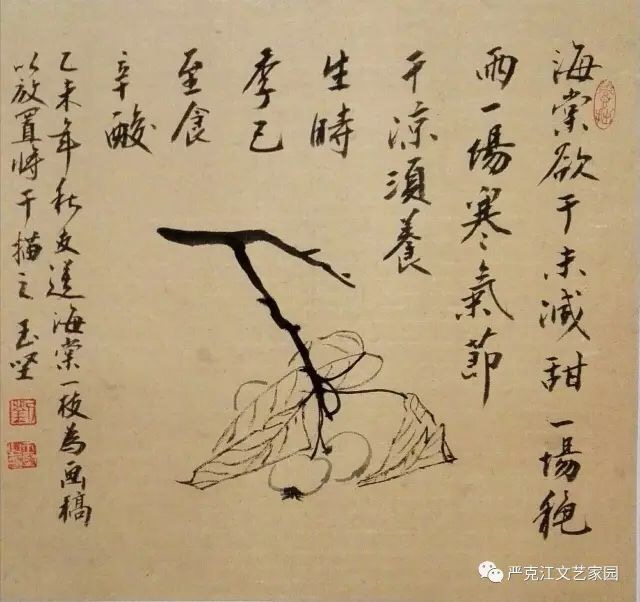 海棠欲干未減甜一場穐
雨一場寒氣節
干涼須養
生時
季已
至食
辛酸
乙未年秋友送海棠一枝為画稿
以放置將干描之 玉坚
严克江文艺家园